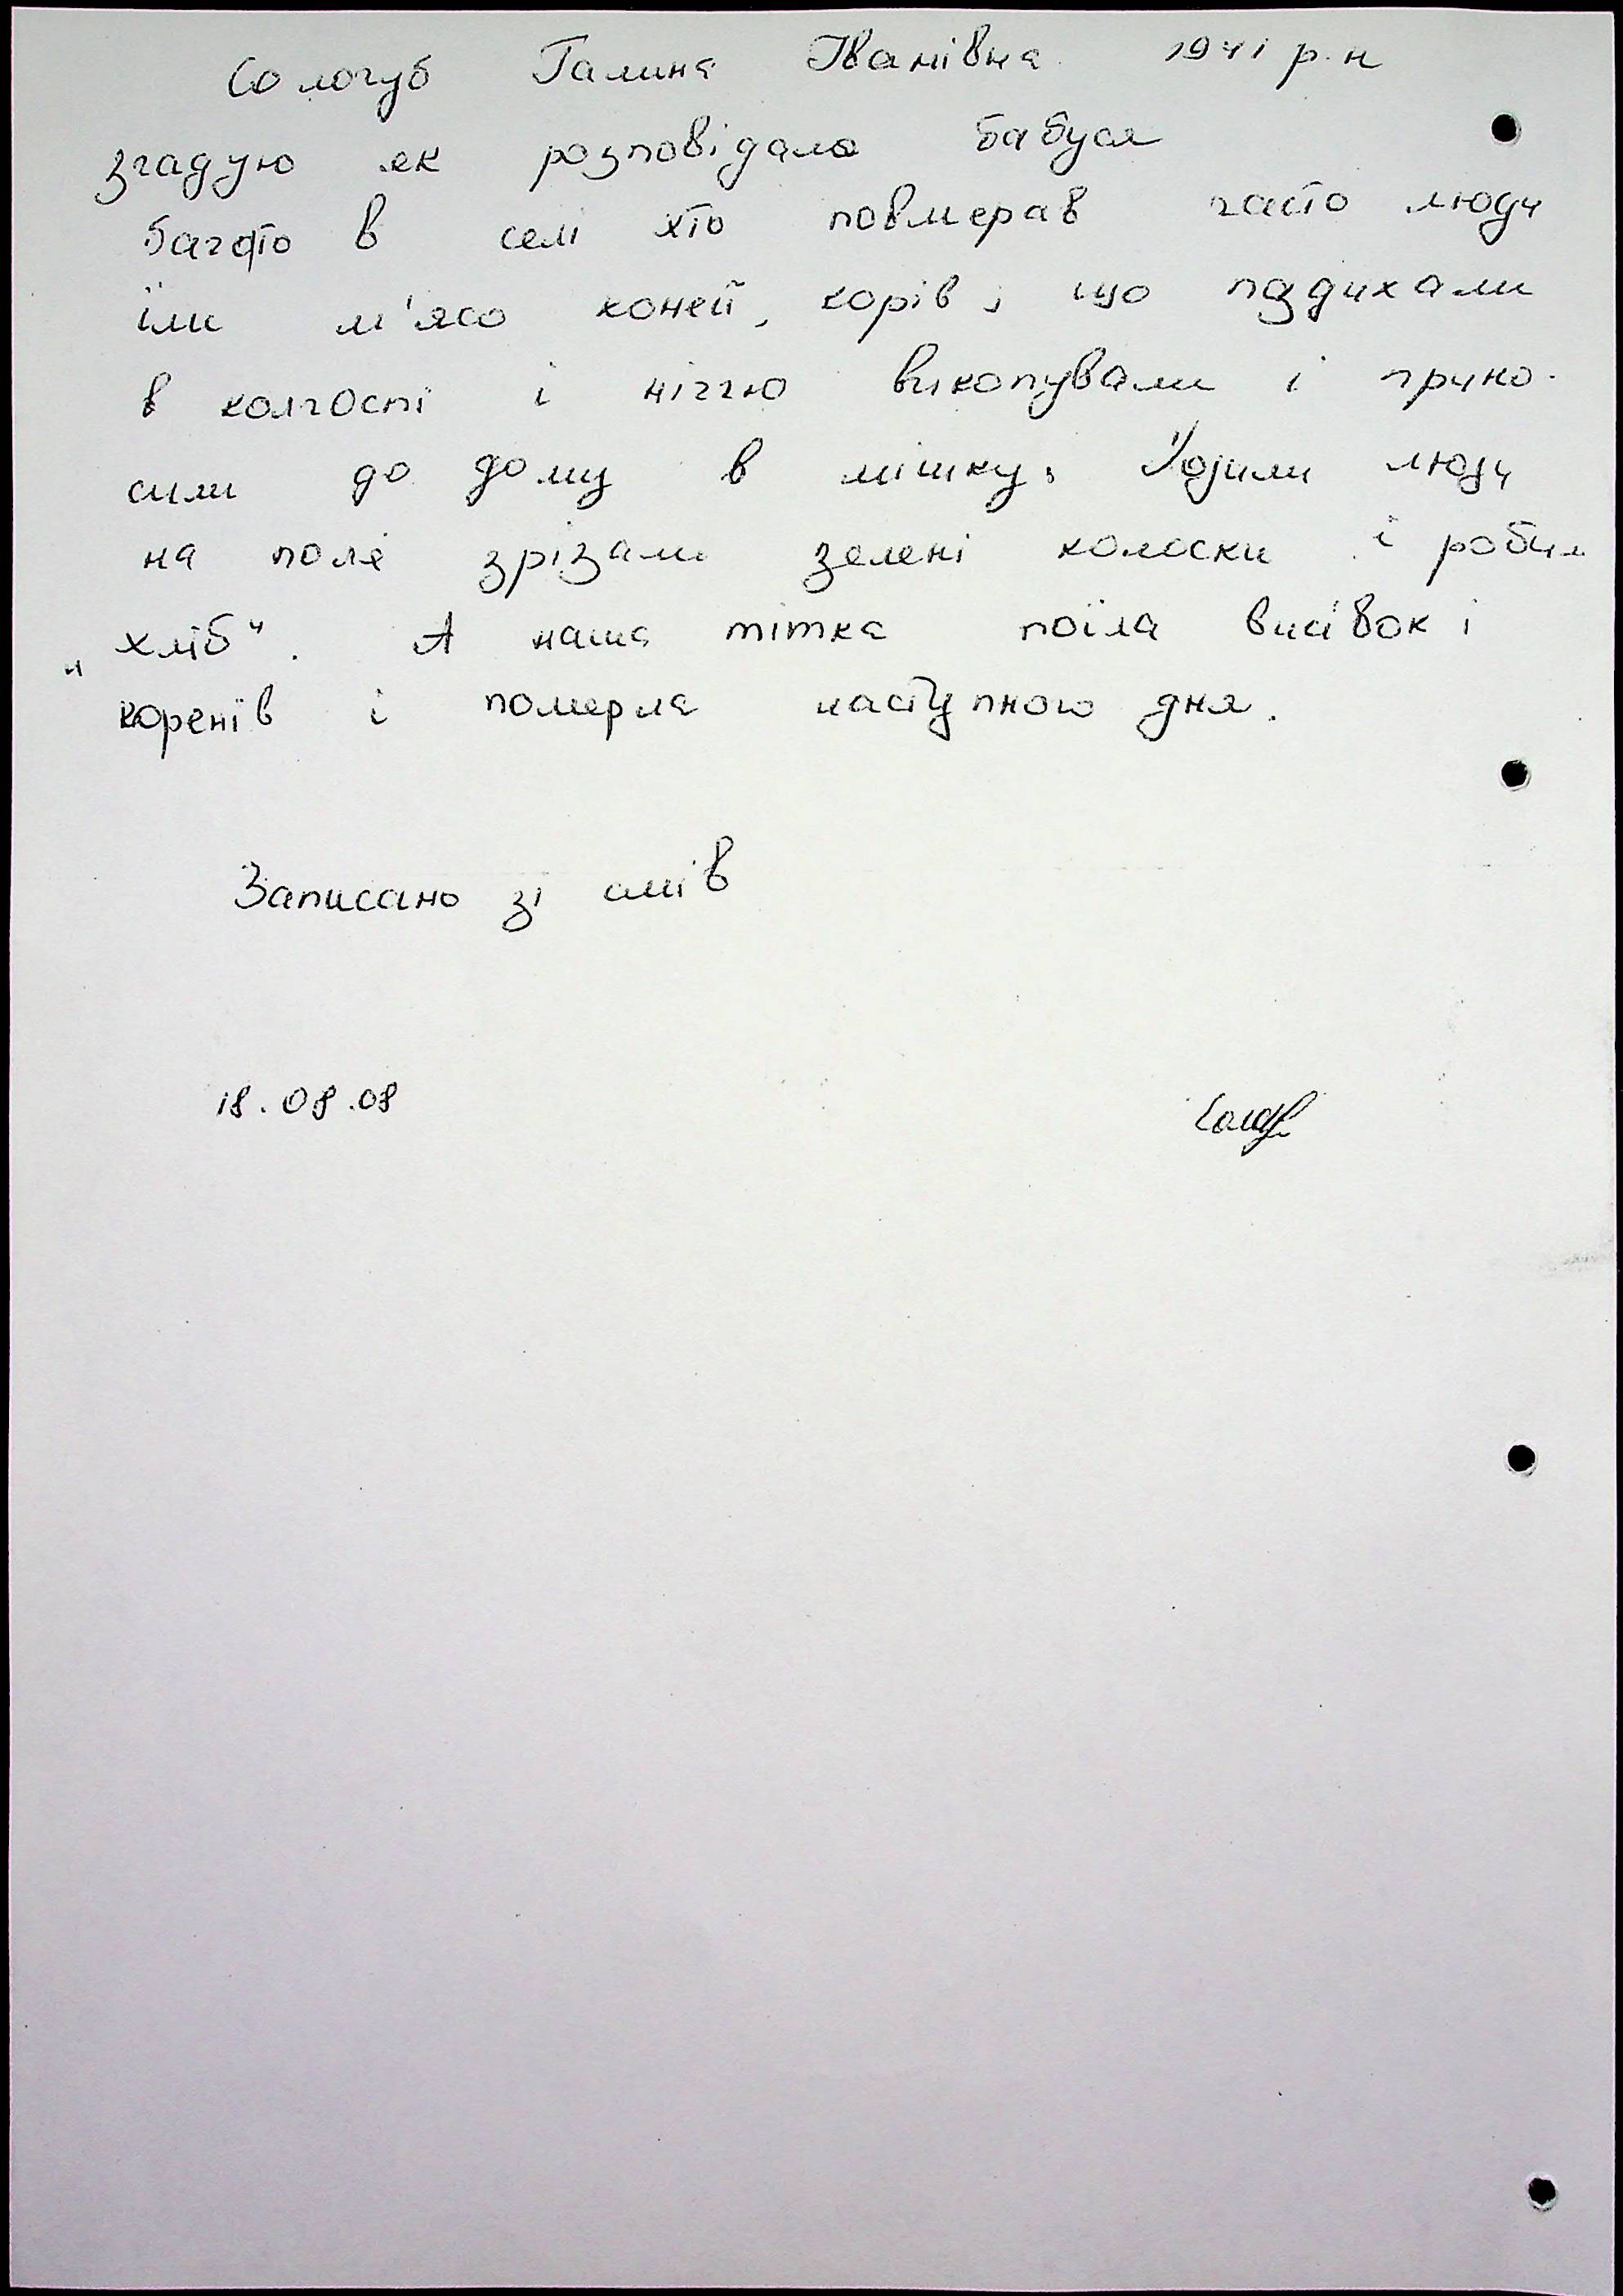 Сологуб Галина Іванівна 1941 р.н
згадую як розповідала бабуся
багато в селі хто повмерав часто люди
їли м'ясо коней, корів, що падихали
в колгоспі і ніччю викопували і прино-
сили до дому в мішку. Ходили люди
на поле зрізали зелені колоски і робили
„хліб". А наша тітка поїла висівок і
коренів і померла наступного дня.
Записано зі слів
18.08.08